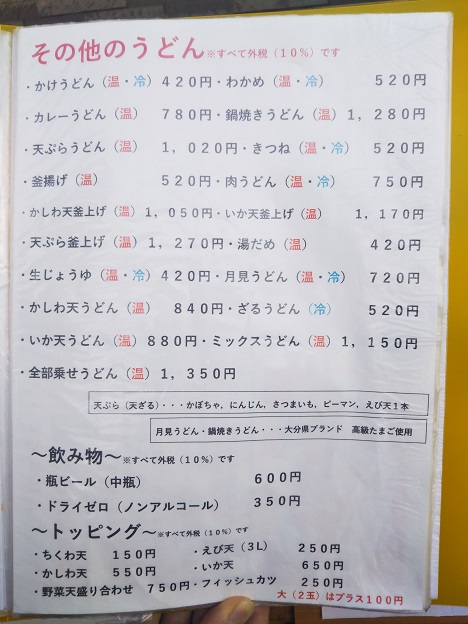 その他のうどん※すべて外税（１０％）です
・かけうどん（温・冷）４２０円・わかめ（温・冷）５２０円
・カレーうどん（温）７８０円・鍋焼きうどん（温）１，２８０円
・天ぷらうどん（温）１，０２０円・きつね（温・冷）５２０円
・釜揚げ（温）５２０円・肉うどん（温・冷）７５０円
・かしわ天釜上げ（温）１，０５０円・いか天釜上げ（温）１，１７０円
・天ぷら釜上げ（温）１，２７０円・湯だめ（温）４２０円
・生じょうゆ（温・冷）４２０円・月見うどん（温・冷）７２０円
・かしわ天うどん（温）８４０円・ざるうどん（冷）５２０円
・いか天うどん（温）８８０円・ミックスうどん（温）１，１５０円
・全部乗せうどん（温）１，３５０円
天ぷら（天ざる）・・・かぼちゃ，にんじん，さつまいも，ピーマン，えび天１本
月見うどん・鍋焼きうどん・・・大分県ブランド　高級たまご使用
～飲み物～※すべて外税（１０％）です
・瓶ビール（中瓶）６００円
・ドライゼロ（ノンアルコール）３５０円
～トッピング～※すべて外税（１０％）です
・ちくわ天　１５０円　・えび天（３Ｌ）２５０円
・かしわ天　５５０円　・いか天　６５０円
・野菜天盛り合わせ　７５０円・フィッシュカツ　２５０円
大（２玉）はプラス１００円